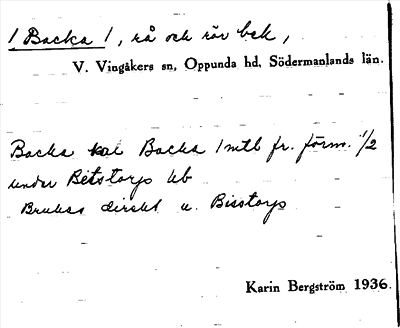 / Backa /, rå och rör bek,
V. Vingåkers sn, Oppunda hd, Södermanlands län.
Backa kal Backa 1 mtl fr. förm. 1/2
under Betstorps hb
Brukas direkt u. Bisstorp
Karin Bergström 1936.